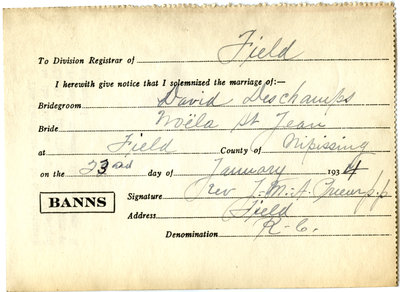 To Division Registrar of Field
I herewith give notice that I solemnized the marriage of:—
Bridegroom David Deschamps
Bride Noëla St Jean
at Field County of Nipissing
on the 23rd day of January 1934
BANNS
Signature Rev J.-M.-A. p.p.
Address Field
Denomination R-C.